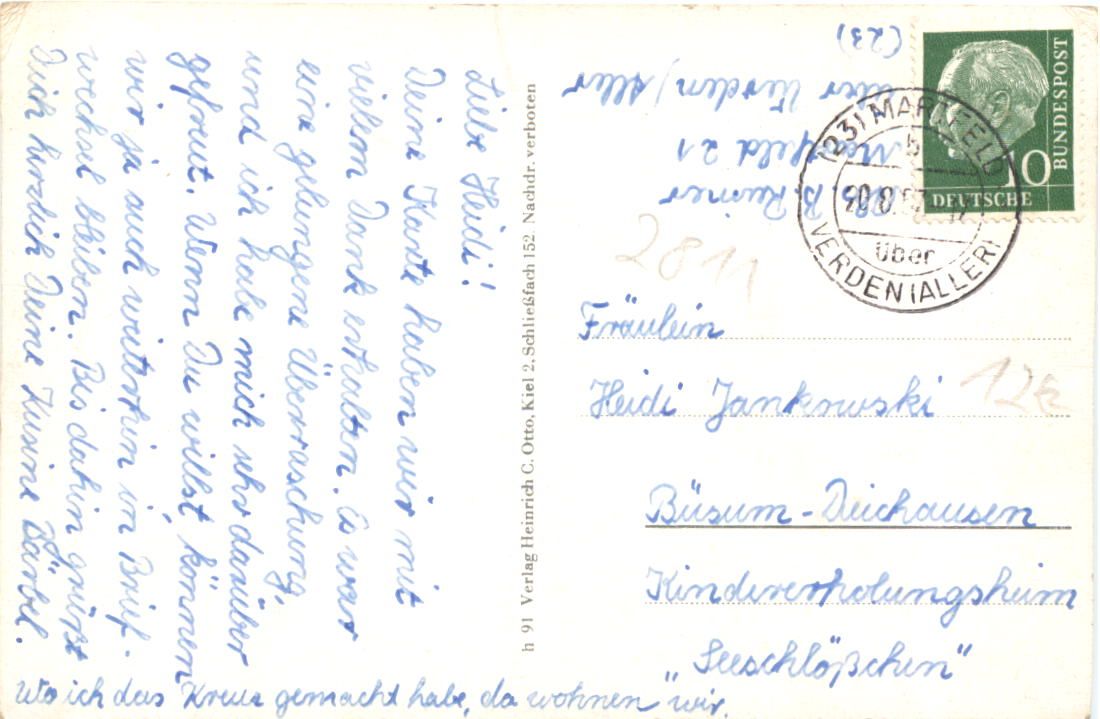 Liebe Heidi!
Deine Karte haben wir mit
vielem Dank erhalten. Es war
eine gelungene Überraschung,
und ich habe mich sehr darüber
gefreut. Wenn Du willst, können
wir ja auch weiterhin in Brief-
wechsel bleiben. Bis dahin grüßt
Dich herzlich Deine Kusine Bärbel.
Wo ich das Kreuz gemacht habe, da wohnen wir.
h 91 Verlag Heinrich C. Otto, Kiel 2, Schließfach 152. Nachdr. verboten
Abs. B.
21
über Verden/Aller
(23)
DEUTSCHE
BUNDESPOST
10
(23) MARTFELD
b
über
VERDEN (ALLER)
2811
Fräulein
Heidi Jankowski
12€
Büsum-Deichausen
Kindererholungsheim
"Seeschlößchen"